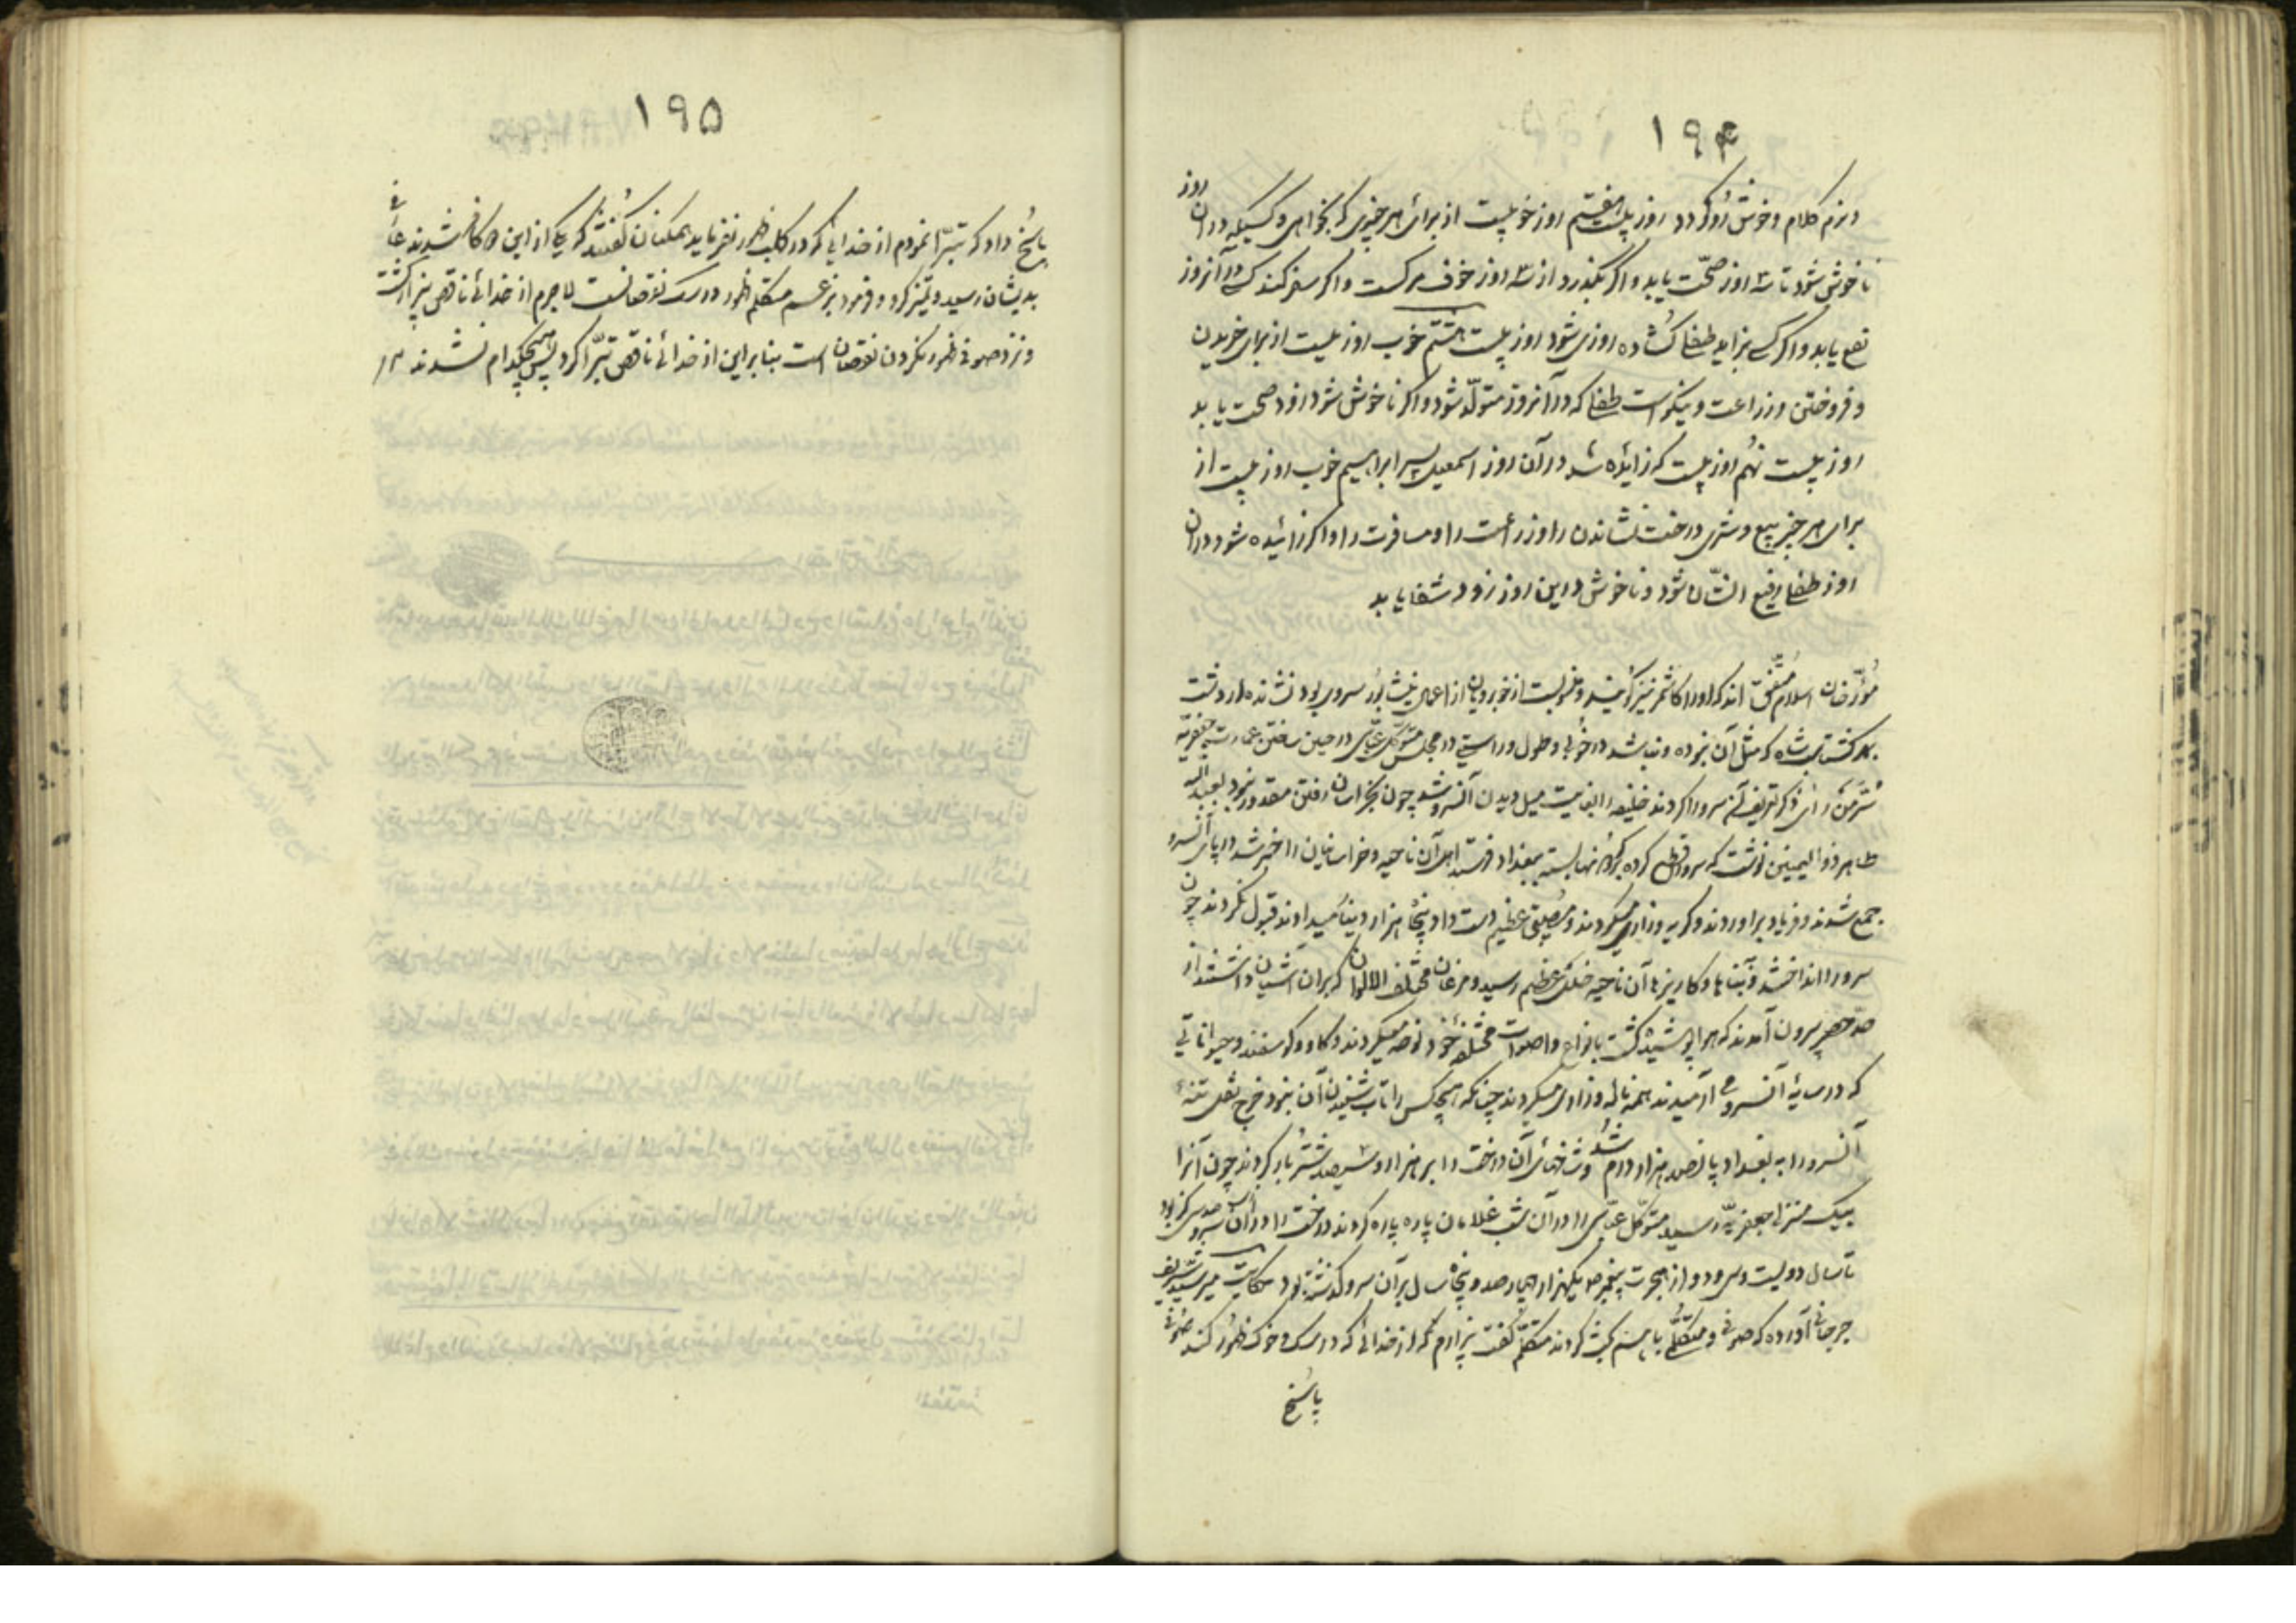 ۱۹۴
و نرم کلام و خوش رو گردد روز بیست هفتم روز خوبیست از برای هر چیزی که بخواهی و کسیکه در آن روز
ناخوش شود تا سه روز صحّت یابد و اگر بگذرد از سه روز خوف مرگست و اگر سفر کند کسی در آنروز
نفع یابد و اگر کسی بزاید طفل گشاده روزی شود روز بیست هشتم خوب روزیست از برای خریدن
و فروختن و زراعت و نیکوست طفل که در آنروز متولّد شود و اگر ناخوش شود زود صحت یابد
روز بیست نهم روزیست که زائیده شد در آن روز اسمعیل پسر ابراهیم خوب روزیست از
برای هر چیز بیع و شری درخت نشاندن را و زراعت را و مسافرت را و اگر زائیده شود در آن
روز طفل رفیع الشّان شود و ناخوش در این روز زود شفا یابد
مورّخان اسلام متّفق اند که او را کاشمر نیز گویند و قریه‌ایست از اعمال نیشابور سروی بود نشانده زردشت
کشتاسب شاه که مثل آن نبوده و نباشد در خوبی و طول و راستی در مجلس متوکّل عبّاسی در حین ساختن عمارت جعفریّه
سُرّ مَن رَای ذکر تعریف آن سرو را کردند خلیفه را بغایت میل دیدن آنسرو شد چون بخراسان رفتن مقدور نبود بعبدالله
طاهر ذوالیمینین نوشت که سرو قطع کرده بگردونها بسته ببغداد فرستد اهل آن ناحیه و خراسانیان را خبر شد در پای آنسرو
جمع شدند و فریاد برآوردند و گریه و زاری میکردند و مصیبتی عظیم دست داد و پنجاه هزار دینار میدادند قبول نکردند چون
سرو را انداختند و بناها و کاریزها آن ناحیه خللی عظیم رسید و مرغان مختلف الالوان که بر آن آشیان داشتند از
حد حصر بیرون آمدند که هوا پوشیده گشت بانواع و اصوات مختلفه خود نوحه میکردند و گاو و گوسفند و حیواناتی
که در سایهٔ آنسرو می آرمیدند همه ناله و زاری میکردند چنانکه هیچکس را تاب شنیدن آن نبود خرج نقل تنهٔ
آنسرو را به بغداد پانصد هزار درم شد و شاخهای آن درخت را بر هزار و سیصد شتر بار کردند چون آنرا
بیک منزل جعفریه رسید متوکّل عبّاسی را در آن شب غلامان پاره پاره کردند
تا سال دویست و سی و دو از هجرت پیغمبر یکهزار و چهارصد و پنجاه سال بر آن سرو گذشته بود حکایت میر سید شریف
جرجانی آورده که صوفی و متکلّمی با هم بحث کردند متکلّم گفت بیزارم از خدائی که در سگ و خوک ظهور کند صوفی
پاسخ
۱۹۵
پاسخ داد که تبرّا نمودم از خدایی که در کلب ظهور نفرماید همگنان گفتند که یکی از این دو کافر شدند عارفی
بدیشان رسید و تمیز کرد و فرمود بزعم متکلم ظهور در سگ نقصانست لا جرم از خدائی ناقص بیزار گشت
و نزد صوفی ظهور نکردن نقصان است بنابراین از خدائی ناقص تبرّا کرد پس هیچکدام نشدند ۱۲